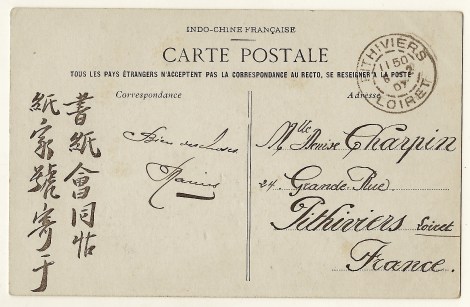 INDO-CHINE FRANÇAISE
CARTE POSTALE
TOUS LES PAYS ÉTRANGERS N'ACCEPTENT PAS LA CORRESPONDANCE AU RECTO, SE RENSEIGNER A LA POSTE
Correspondance
Adresse
PITHIVIERS
11 50
LOIRET
書紙會同帖
紙家號寄于
Bien des choses
Marius
Mlle Denise Charpin
24 Grande Rue
Pithiviers Loiret
France